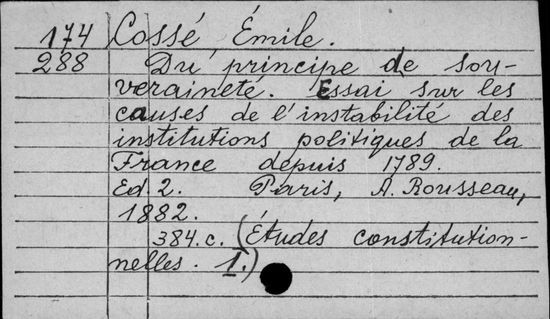 174 Cossé, Émile.
288 Du principe de sou-
veraineté. Essai sur les
causes de l'instabilité des
institutions politiques de la
France depuis 1789.
Ed. 2. Paris, A. Rousseau,
1882.
384.c. (Études constitution-
nelles. I.)